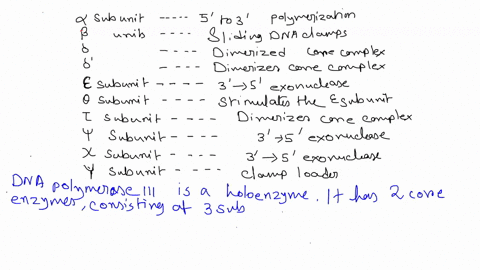 α subunit ---- 5' to 3' polymerization
β units ---- Sliding DNA clamps
δ ---- Dimerized core complex
δ' ---- Dimerizes core complex
ε subunit ---- 3'→5' exonuclease
θ subunit ---- Stimulates the ε subunit
τ subunit ---- Dimerizes core complex
Ψ subunit ---- 3'→5' exonuclease
χ subunit ---- 3'→5' exonuclease
γ subunit ---- clamp loader
DNA polymerase III is a holoenzyme. It has 2 core
enzymes, consisting of 3 sub